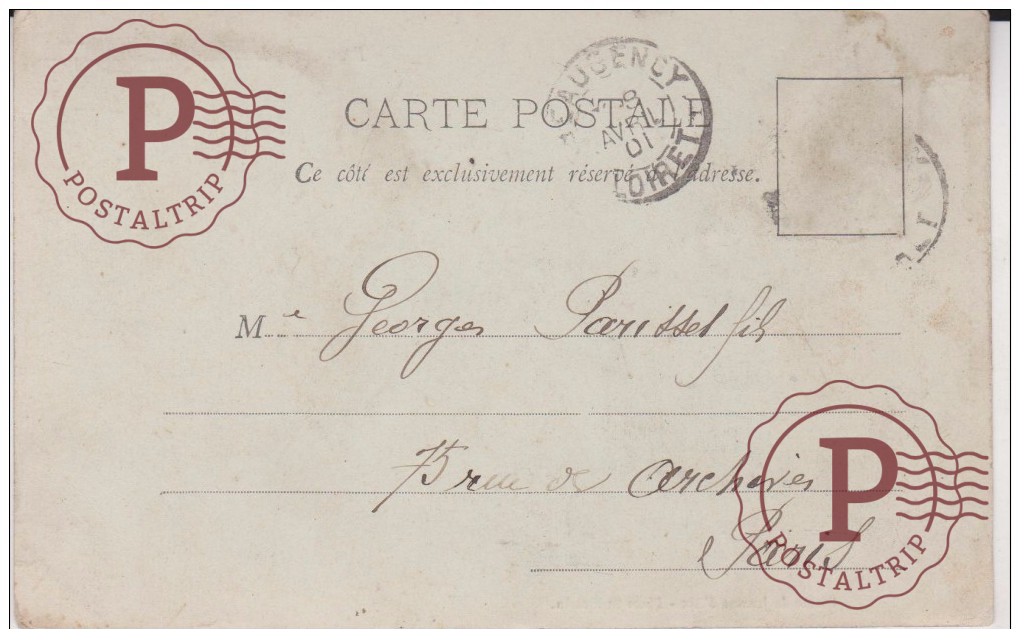 P
POSTALTRIP
BEAUGENCY
8
AVRIL
01
LOIRET
CARTE POSTALE
Ce côté est exclusivement réservé à l'adresse.
Mr Georges Parissel fils
75 rue des archives
Paris
P
POSTALTRIP